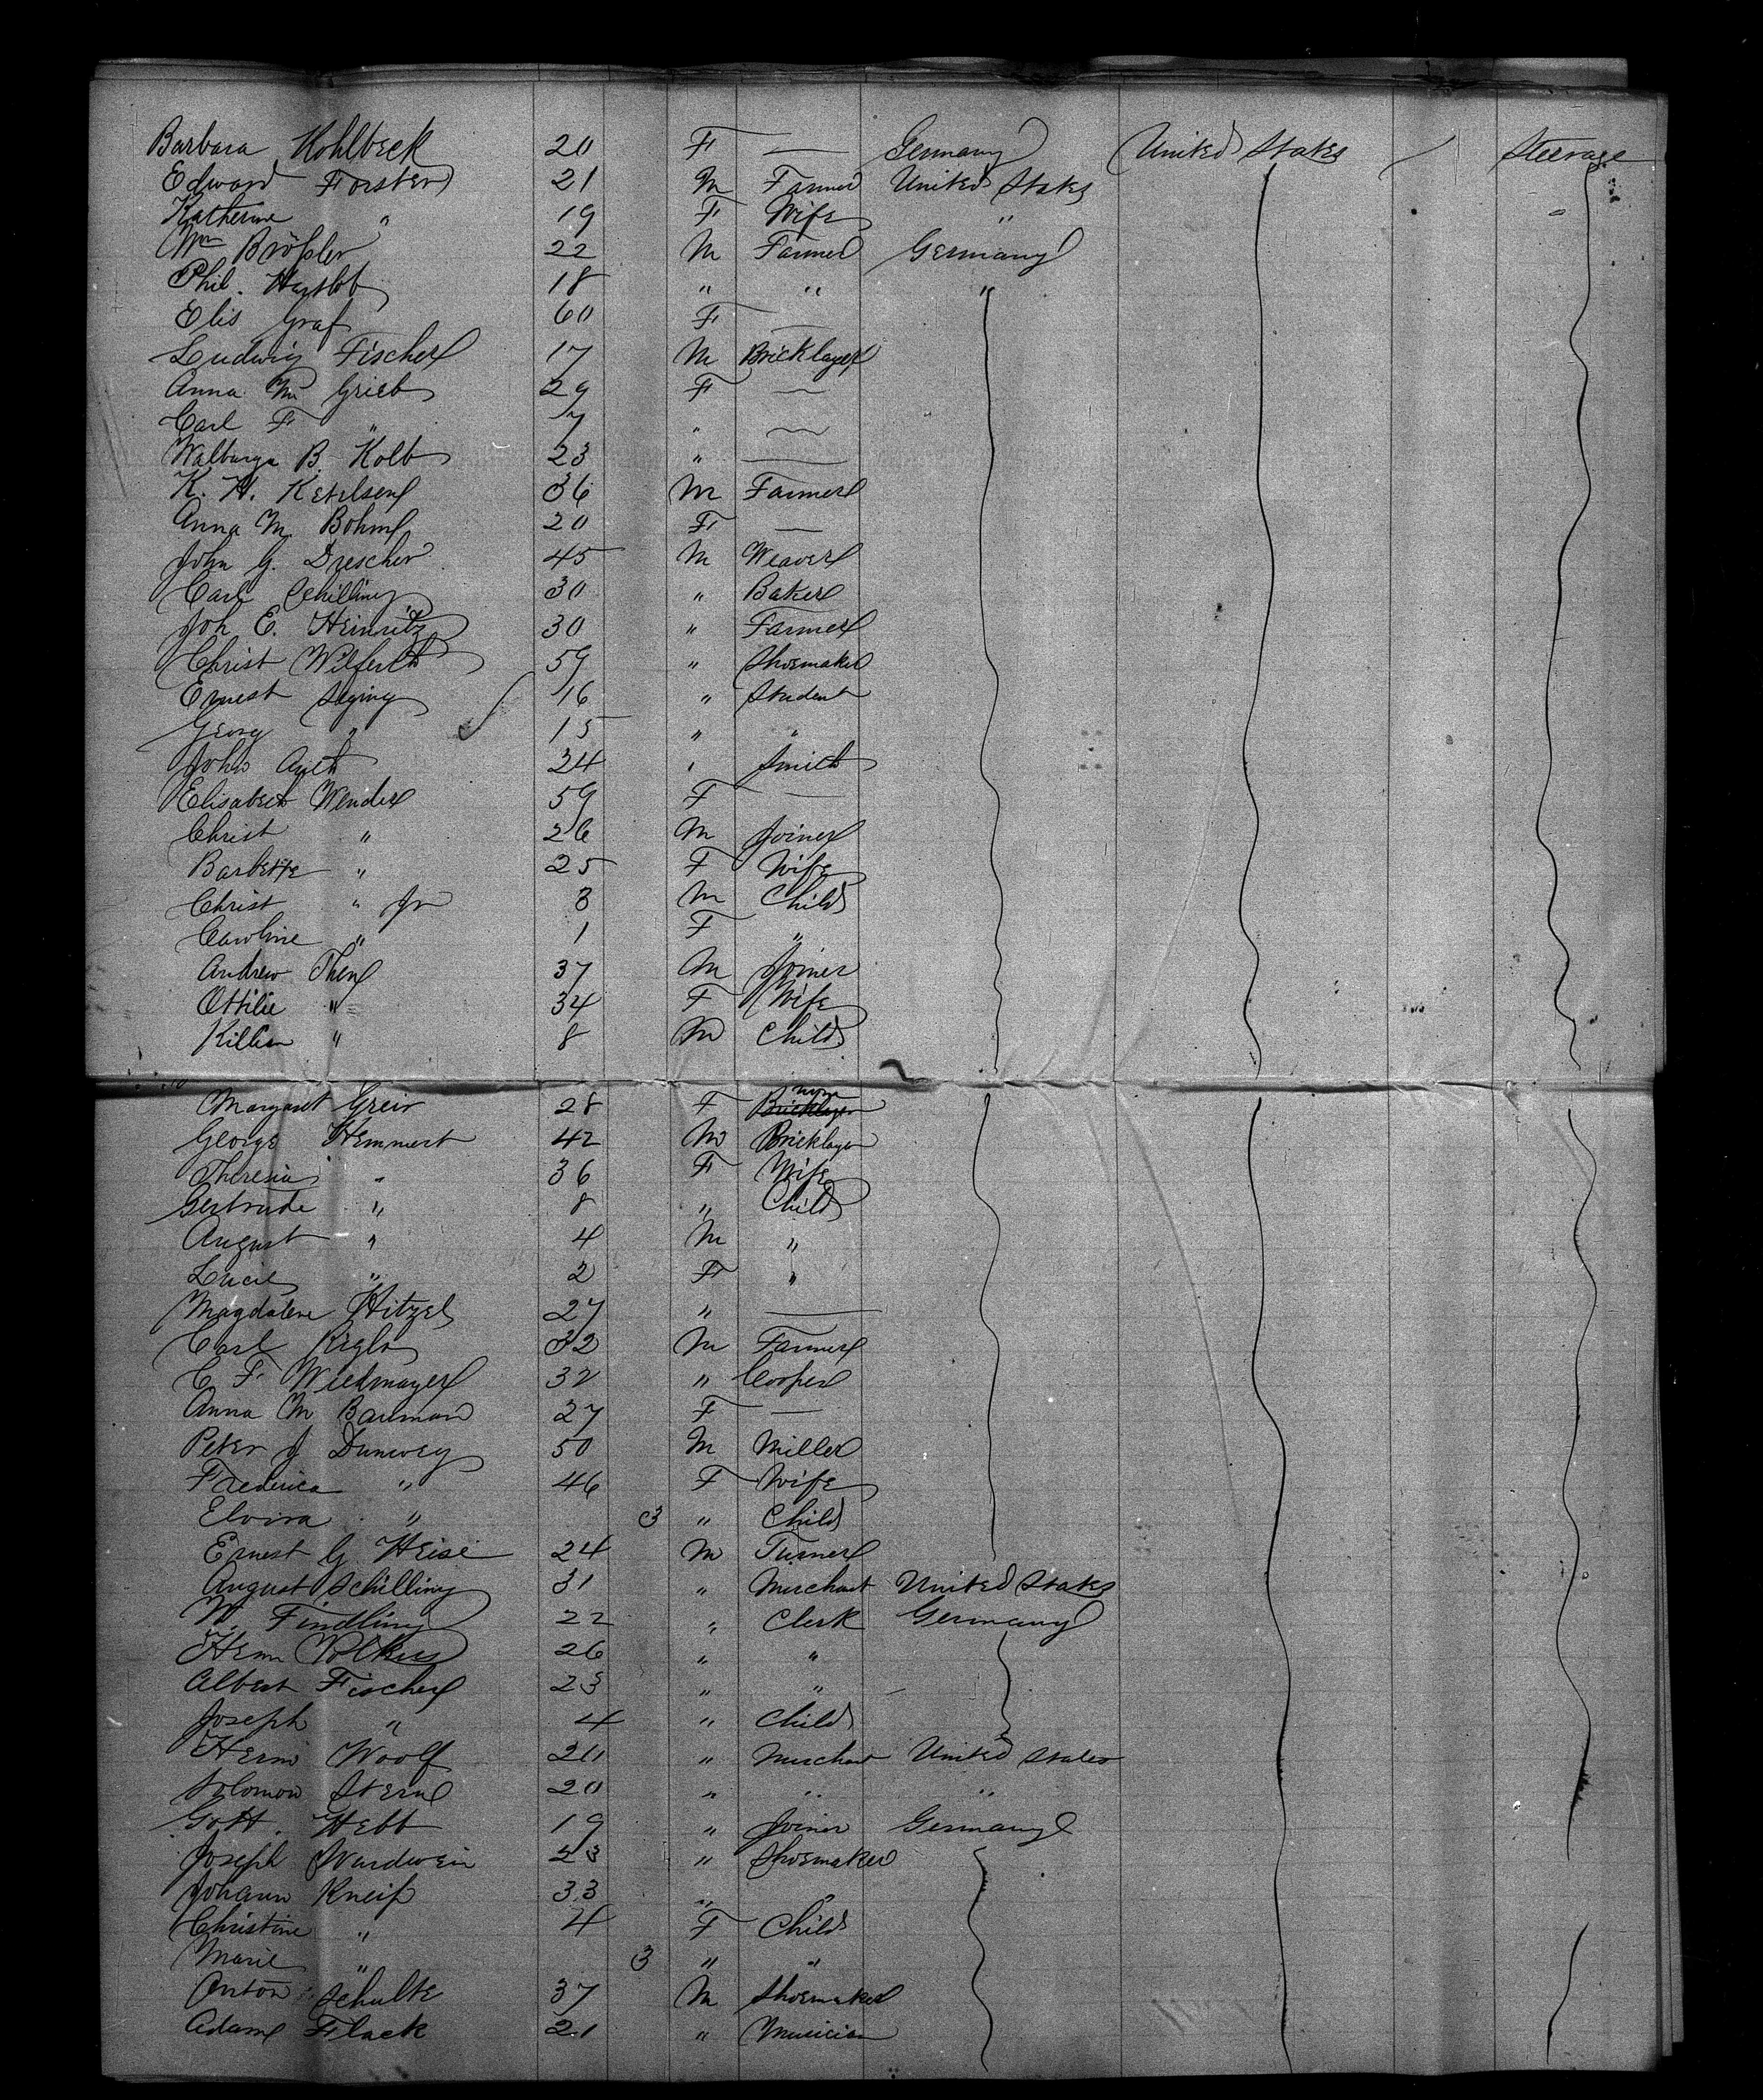 Barbara Hohlbeck 20 F — Germany United States / Steerage
Edward Forster 21 M Farmer United States
Katherine " 19 F Wife "
Wm Broßler 22 M Farmer Germany
Phil. Hartlob 18 " " "
Elis Graf 60 F —
Ludwig Fischer 17 M Bricklayer
Anna M Grieb 29 F —
Carl F " 7 " —
Walburga B. Kolb 23 " —
K. H. Ketelsen 36 M Farmer
Anna M. Bohm 20 F —
John G. Drescher 45 M Weaver
Carl Schilling 30 " Baker
Joh E. Heinritz 30 " Farmer
Christ Wilferth 59 " Shoemaker
Ernest 16 " Student
Georg " 15 " "
John 24 " Smith
Elisabeth Wender 59 F —
Christ " 26 M Joiner
Barbette " 25 F Wife
Christ " Jr 3 M Child
Caroline " 1 F "
Andrew Then 37 M Joiner
Ottilie " 34 F Wife
Killian " 8 M Child
Margaret Greir 28 F Bricklayer
George Hemmert 42 M Bricklayer
Theresia " 36 F Wife
Gertrude " 8 " Child
August " 4 M "
Lucie " 2 F "
Magdalene Hitzel 27 " —
Carl 32 M Farmer
C F Wiedmayer 32 " Cooper
Anna M Bauman 27 F —
Peter J Dunwey 50 M Miller
Frederica " 46 F Wife
Elvira " 3 " Child
Ernest G Heise 24 M Turner
August Schilling 31 " Merchant United States
W. Findling 22 " Clerk Germany
Herm Volkers 26 " "
Albert Fischer 23 " "
Joseph " 4 " Child
Herm Woolf 20 " Merchant United States
Solomon Stern 20 " " "
Gott. Hebb 19 " Joiner Germany
Joseph Wardwein 23 " Shoemaker
Johann Kneip 33 " "
Christine " 4 F Child
Marie " 3 " "
Anton Schulte 37 M Shoemaker
Adam Flack 21 " Musician